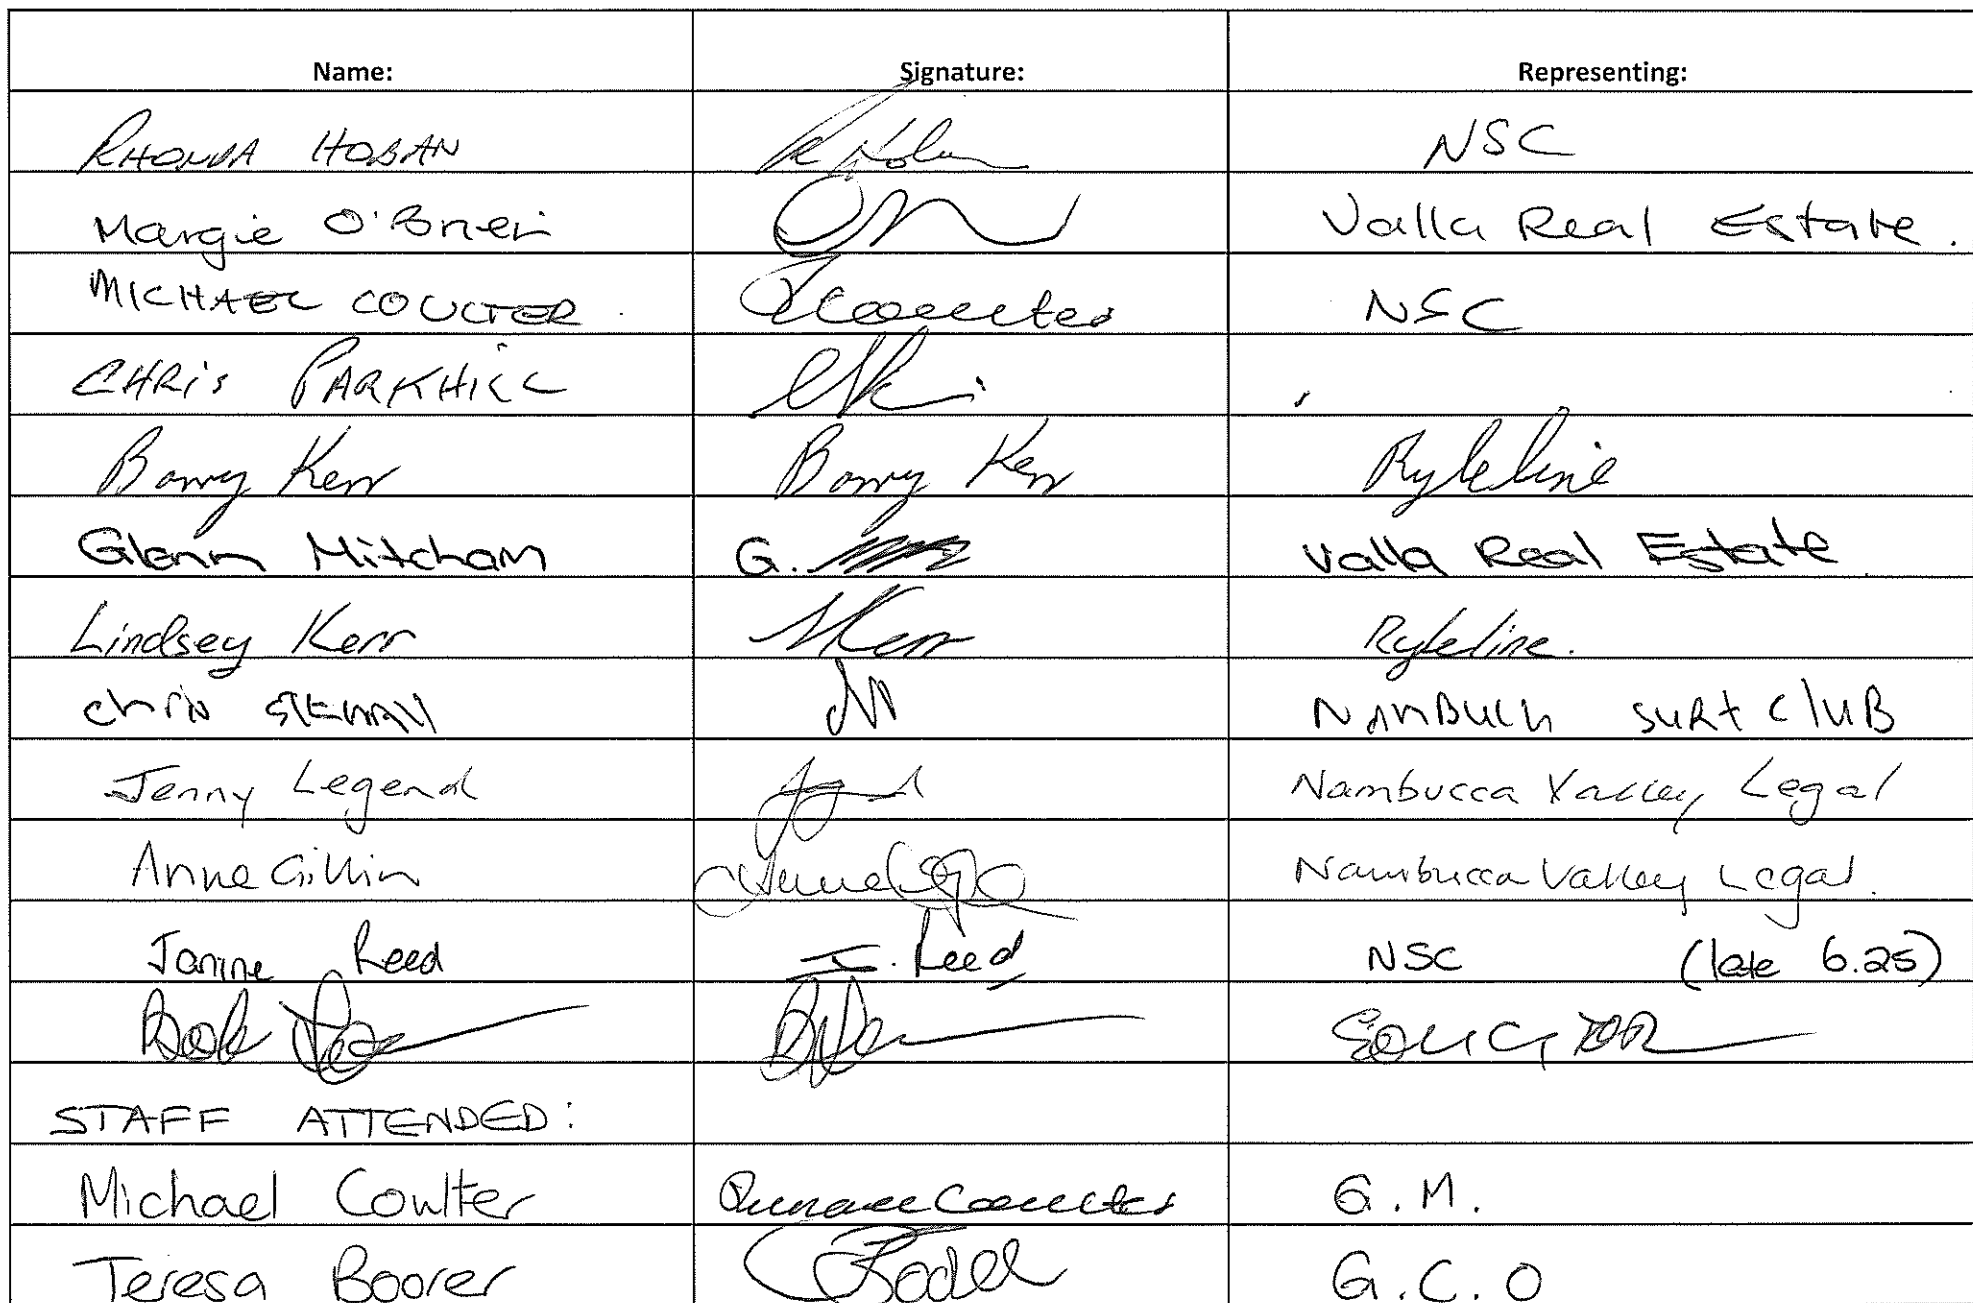 Name: Signature: Representing:
RHONDA HOBAN NSC
Margie O'Brien Valla Real Estate.
MICHAEL COULTER Coulter NSC
CHRIS PARKHILL
Barry Kerr Barry Kerr Ryleline
Glenn Mitcham G. Valla Real Estate
Lindsey Kerr Kerr Ryleline.
Chris NAMBUCCA SURF CLUB
Jenny Legend Nambucca Valley Legal
Anne Gillin Anne Nambucca Valley Legal.
Janine Reed J. Reed NSC (late 6.25)
SOLICITOR
STAFF ATTENDED:
Michael Coulter Coulter G.M.
Teresa Boorer G.C.O